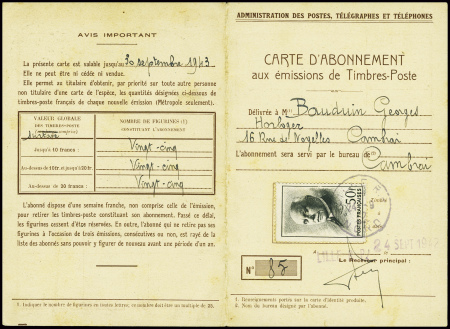 AVIS IMPORTANT
La présente carte est valable jusqu'au 30 septembre 1943
Elle ne peut être ni cédée ni vendue.
Elle permet au titulaire d'obtenir, par priorité sur toute autre personne
non titulaire d'une carte de l'espèce, les quantités désignées ci-dessous de
timbres-poste français de chaque nouvelle émission (Métropole seulement).
VALEUR GLOBALE
DES TIMBRES-POSTE
NOMBRE DE FIGURINES (1)
CONSTITUANT L'ABONNEMENT
Jusqu'à 10 francs
Vingt-cinq
Au-dessus de 10 fr et jusqu'à 30 fr
Vingt-cinq
Au-dessus de 30 francs
Vingt-cinq
L'abonné dispose d'une semaine franche, non comprise celle de l'émission,
pour retirer les timbres-poste constituant son abonnement. Passé ce délai,
les figurines cessent d'être réservées. En outre, l'abonné qui ne retire pas ses
figurines à l'occasion de trois émissions, consécutives ou non, est rayé de la
liste des abonnés sans pouvoir y figurer de nouveau avant une période d'un an.
1. Indiquer le nombre de figurines en toutes lettres; ce nombre doit être un multiple de 25.
ADMINISTRATION DES POSTES, TÉLÉGRAPHES ET TÉLÉPHONES
CARTE D'ABONNEMENT
aux émissions de Timbres-Poste
Délivrée à M Bauduin Georges
Horloger
16 Rue de Noyelles Cambrai
L'abonnement sera servi par le bureau de
Cambrai
50F
POSTES FRANÇAISES
24 SEPT 1942
Le Receveur principal :
N° 85
1. Renseignements portés sur la carte d'identité produite.
2. Nom du bureau désigné par l'abonné.